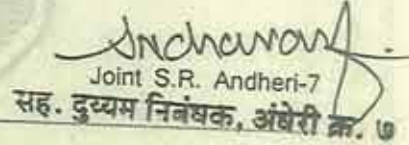 Joint S.R. Andheri-7
सह. दुय्यम निबंधक, अंधेरी क्र. ७